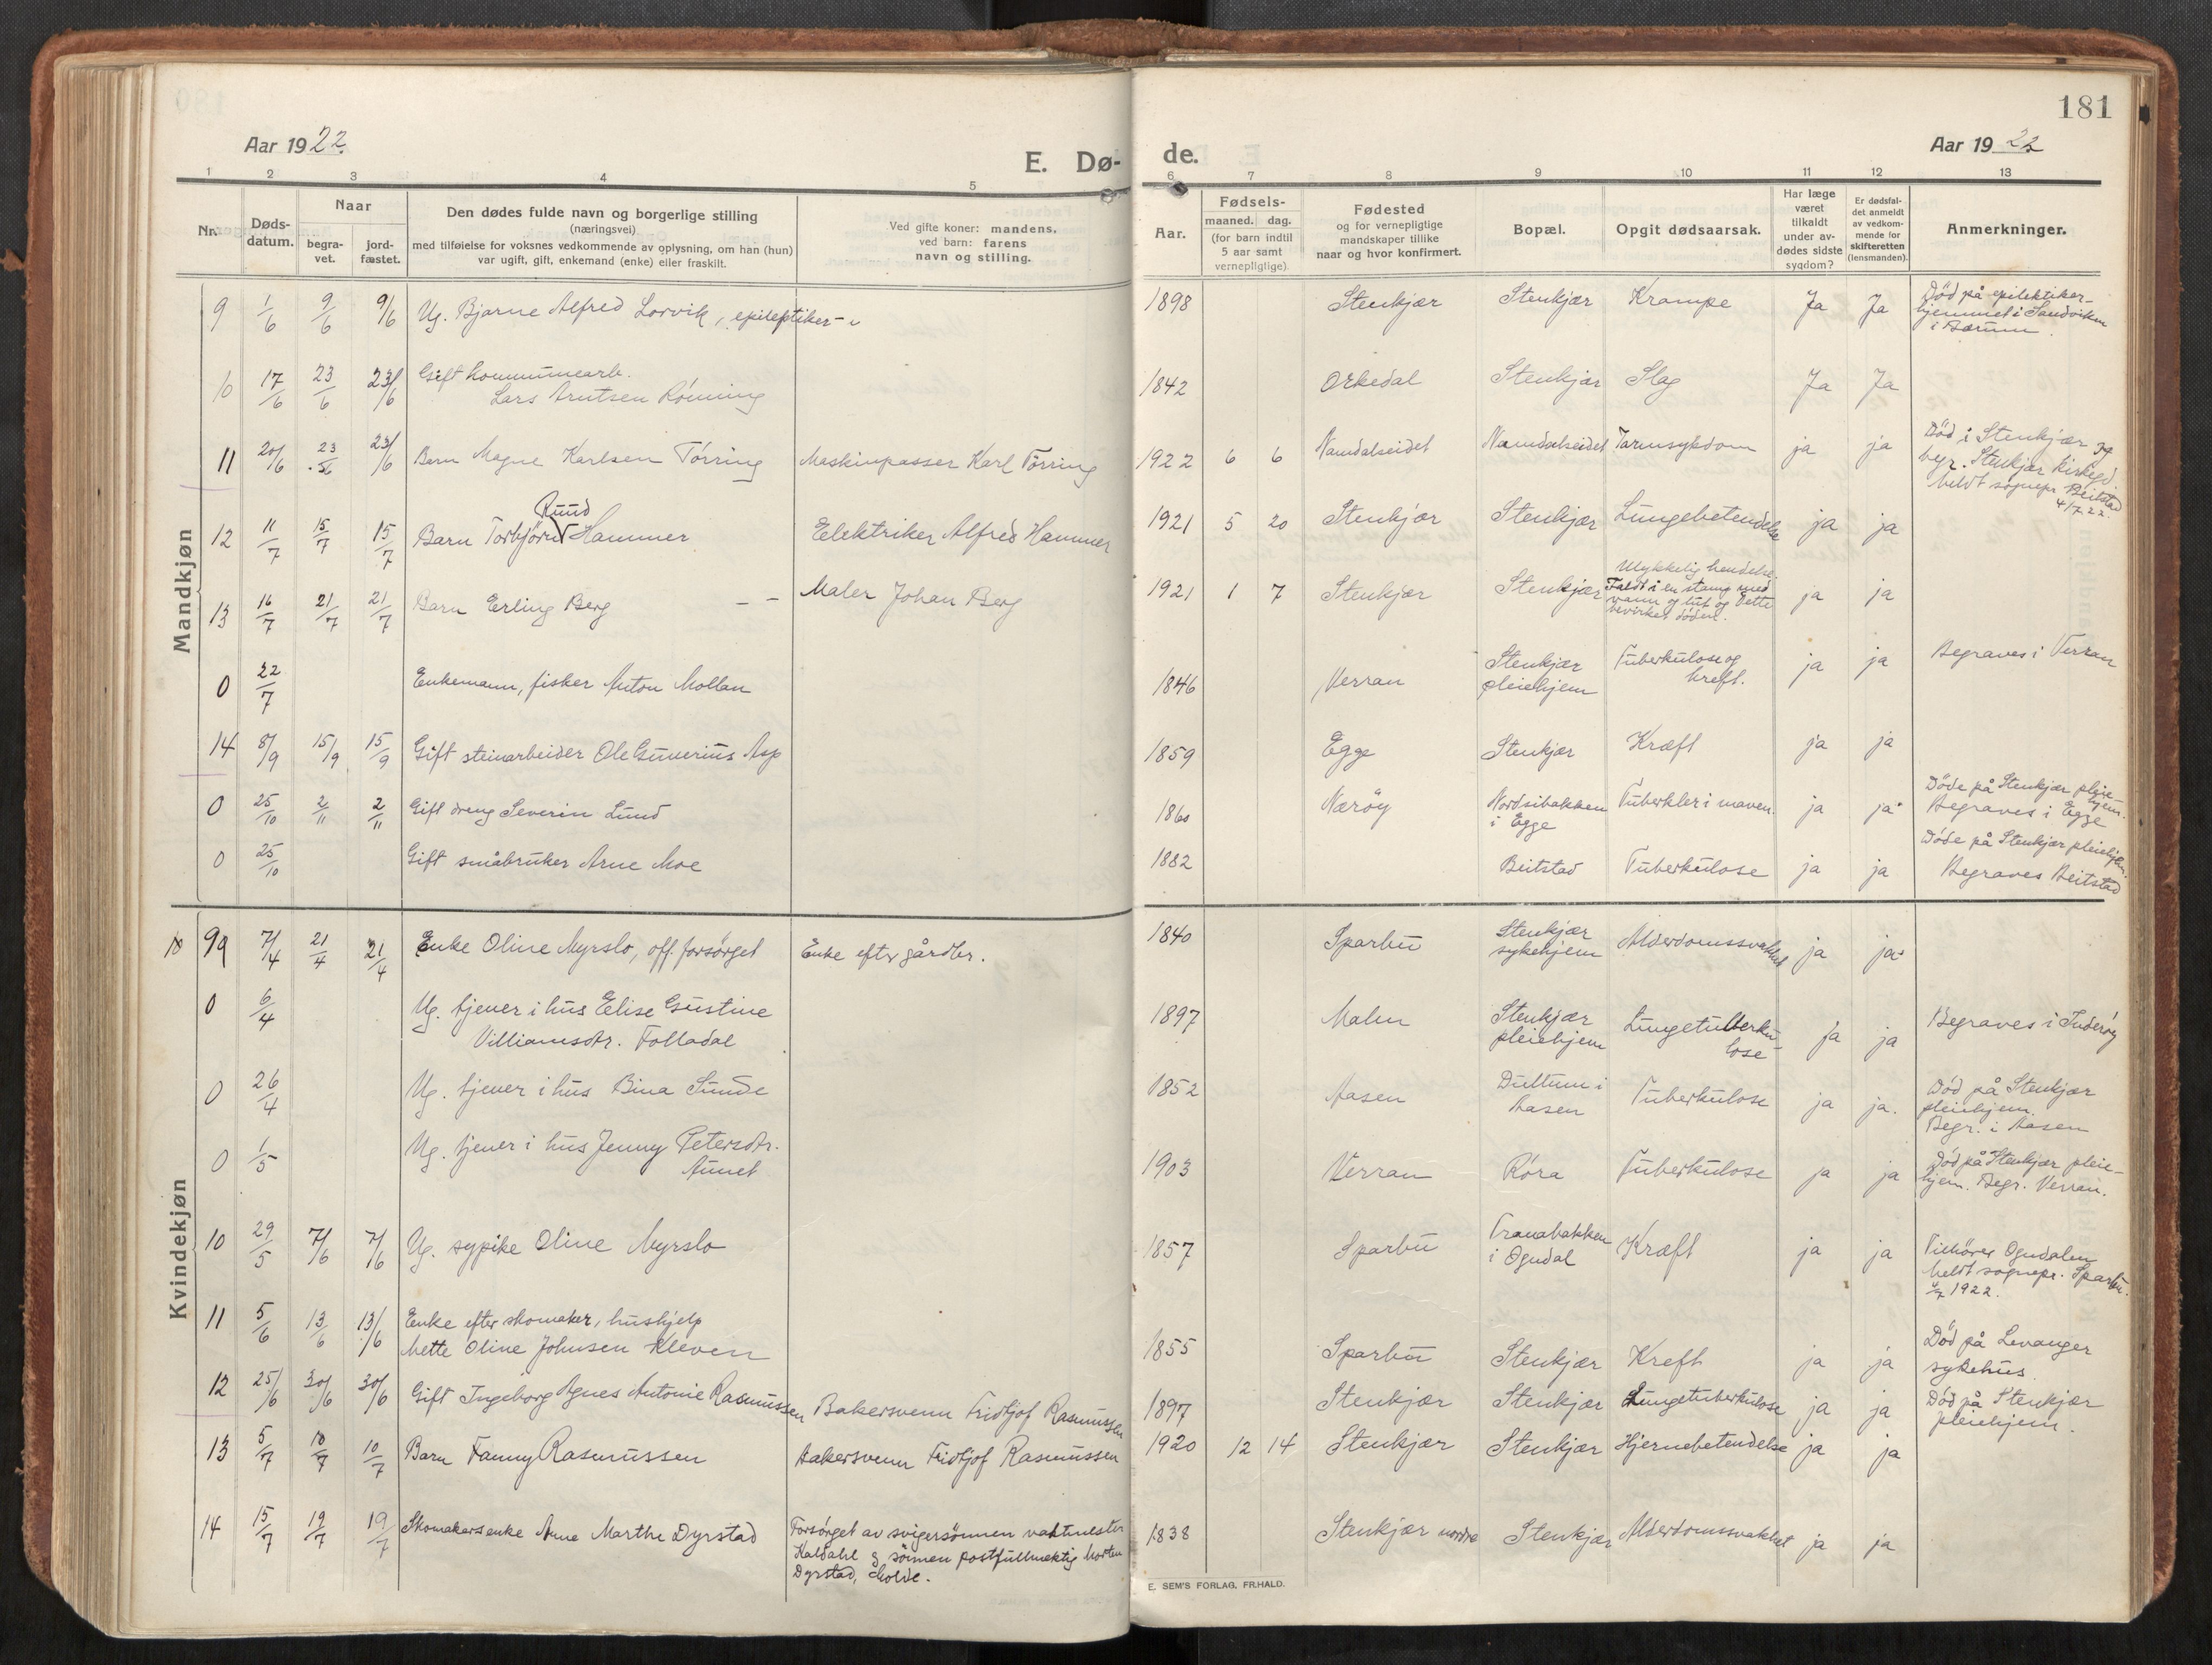 181
Aar 1922.
E. Dø-
de.
Aar 1922
1 2 3 4 5
6 7 8 9 10 11 12 13
Nr.
Døds-
datum.
Naar
begra-
vet.
jord-
fæstet.
Den dødes fulde navn og borgerlige stilling
(næringsvei)
med tilføielse for voksnes vedkommende av oplysning, om han (hun)
var ugift, gift, enkemand (enke) eller fraskilt.
Ved gifte koner: mandens.
ved barn: farens
navn og stilling.
Aar.
Fødsels-
maaned. dag.
(for barn indtil
5 aar samt
vernepligtige)
Fødested
og for vernepligtige
mandskaper tillike
naar og hvor konfirmert.
Bopæl.
Opgit dødsaarsak.
Har læge
været
tilkaldt
under av-
dødes sidste
sygdom?
Er dødsfal-
det anmeldt
av vedkom-
mende for
skifteretten
(lensmanden).
Anmerkninger.
Mandkjøn
9 1/6 9/6 9/6 Ug. Bjarne Alfred Lorvik, epileptiker 1898 Stenkjær Stenkjær Krampe Ja Ja Död på epilektiker-
hjemmet i Sandviken
i Bærum.
10 17/6 23/6 23/6 Gift kommunearb.
Lars Arntsen Rönning 1842 Orkedal Stenkjær Slag Ja Ja
11 20/6 23/6 23/6 Barn Magne Karlsen Törring Maskinpasser Karl Törring 1922 6 6 Namdalseidet Namdalseidet Tarmsykdom ja ja Död i Stenkjær og
begr. Stenkjær kirkegd.
meldt sognepr. Beitstad
4/7 22.
12 11/7 15/7 15/7 Barn Torbjörn Ruud Hammer Elektriker Alfred Hammer 1921 5 20 Stenkjær Stenkjær Lungebetendelse ja ja
13 16/7 21/7 21/7 Barn Erling Berg - - Maler Johan Berg 1921 1 7 Stenkjær Stenkjær Ulykkelig hendelse.
Faldt i en stamp med
vann og lut og dette
bevirket döden. ja ja
0 22/7 Enkemann, fisker Anton Mollan 1846 Verran Stenkjær
pleiehjem Tuberkulose og
kreft. ja ja Begraves i Verran
14 8/9 15/9 15/9 Gift steinarbeider Ole Gunerius Asp 1859 Egge Stenkjær Kræft ja ja
0 25/10 2/11 2/11 Gift dreng Severin Lund 1860 Nærøy Nordsibakken
i Egge Tuberkler i maven. ja ja Döde på Stenkjær pleie-
hjem.
Begraves i Egge
0 25/10 Gift småbruker Arne Moe 1882 Beitstad Tuberkulose ja ja Döde på Stenkjær pleiehjem.
Begraves Beitstad
Kvindekjøn
9 7/4 21/4 21/4 Enke Oline Myrslo, off. forsörget Enke efter gårdbr. 1840 Sparbu Stenkjær
sykehjem Alderdomssvakhet ja ja
0 6/4 Ug. tjener i hus Elise Gustine
Villiamsdtr. Folladal 1897 Malm Stenkjær
pleiehjem Lungetuberku-
lose ja ja Begraves i Inderöy
0 26/4 Ug. tjener i hus Bina Sunde 1852 Aasen Dullum i
Aasen Tuberkulose ja ja. Död på Stenkjær
pleiehjem.
Begr. i Aasen
0 1/5 Ug. tjener i hus Jenny Petersdtr.
Aunet 1903 Verran Röra Tuberkulose ja ja Död på Stenkjær pleie-
hjem. Begr. Verran.
10 29/5 7/6 7/6 Ug. sypike Oline Myrslo 1857 Sparbu Tranabakken
i Ogndal Kræft ja ja Tilhörer Ogndalen
meldt sognepr. Sparbu.
4/7 1922.
11 5/6 13/6 13/6 Enke efter skomaker, hushjelp
Mette Oline Johnsen Kleven 1855 Sparbu Stenkjær Kreft ja ja Död på Levanger
sykehus.
12 25/6 30/6 30/6 Gift Ingeborg Agnes Antonie Rasmussen Bakersvenn Fridtjof Rasmussen 1897 Stenkjær Stenkjær Lungetuberkulose ja ja Död på Stenkjær
pleiehjem.
13 5/7 10/7 10/7 Barn Fanny Rasmussen Bakersvenn Fridtjof Rasmussen 1920 12 14 Stenkjær Stenkjær Hjernebetendelse ja ja
14 15/7 19/7 19/7 Skomakersenke Anne Marthe Dyrstad Forsörget av svigersönnen vaktmester
Kaldahl og sönnen postfullmektig Morten
Dyrstad, Molde. 1838 Stenkjær nordre Stenkjær Alderdomssvakhet ja ja
E. SEM'S FORLAG. FR.HALD.